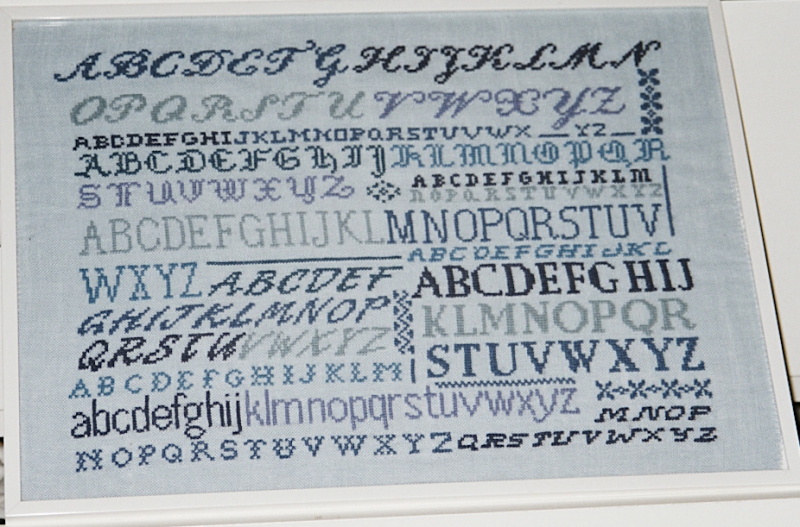 ABCDEFGHIJKLMN
OPQRSTUVWXYZ
ABCDEFGHIJKLMNOPQRSTUVWX YZ
ABCDEFGHIJKLMNOPQR
STUVWXYZ
ABCDEFGHIJKLM
NOPQRSTUVWXYZ
ABCDEFGHIJKLMNOPQRSTUV
WXYZ
ABCDEFGHIJKL
ABCDEF
ABCDEFGHIJ
GHIJKLMNOP
KLMNOPQR
QRSTUVWXYZ
STUVWXYZ
ABCDEFGHIJKLM
abcdefghijklmnopqrstuvwxyz
MNOP
NOPQRSTUVWXYZ
QRSTUVWXYZ